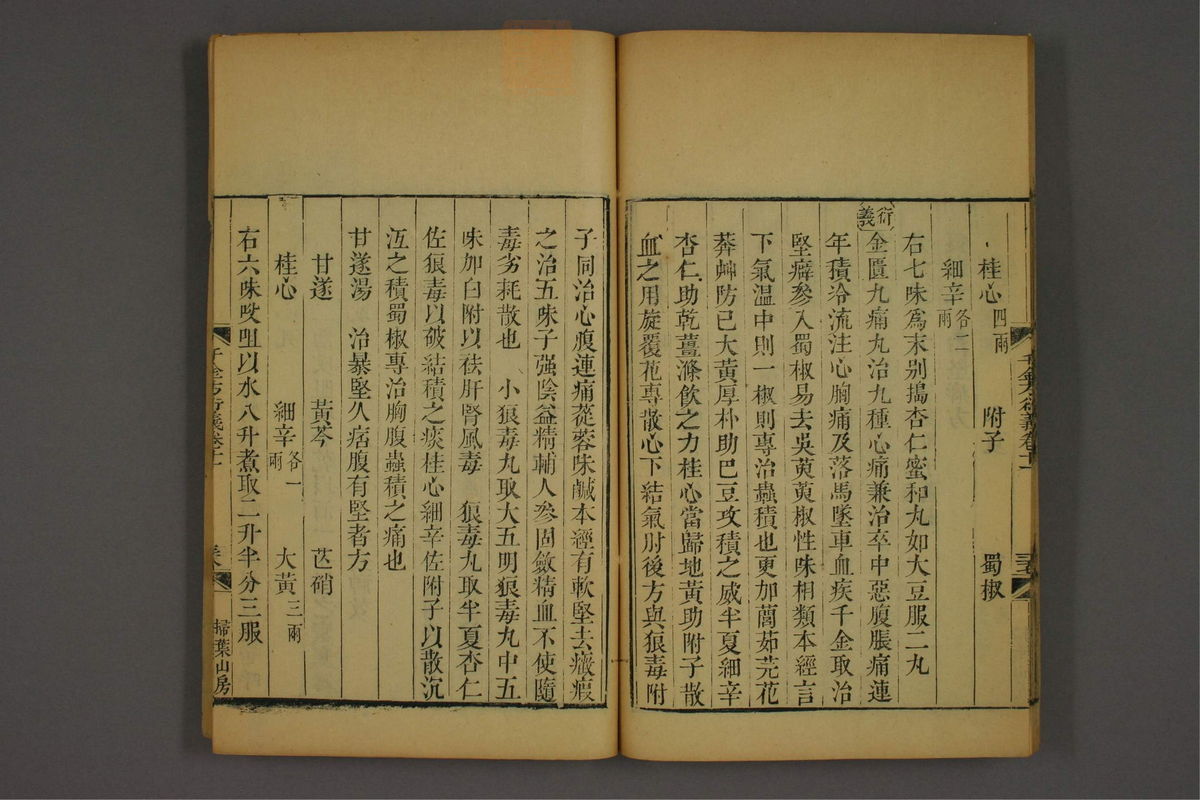 桂心四兩 附子 蜀椒
細辛各二兩
右七味爲末别搗杏仁蜜和丸如大豆服二丸
衍義
金匱九痛丸治九種心痛兼治卒中惡腹脹痛連
年積冷流注心胸痛及落馬墜車血疾千金取治
堅癖參入蜀椒易去吳茱萸椒性味相類本經言
下氣温中則一椒則專治蟲積也更加䕡茹芫花
莽艸防己大黃厚朴助巴豆攻積之威半夏細辛
杏仁助乾薑滌飲之力桂心當歸地黃助附子散
血之用旋覆花專散心下結氣肘後方與狼毒附
千金方衍義卷十一
子同治心腹連痛蓯蓉味鹹本經有軟堅去癥瘕
之治五味子强陰益精輔人參固斂精血不使隨
毒劣耗散也 小狼毒丸取大五明狼毒丸中五
味加白附以祛肝腎風毒 狼毒丸取半夏杏仁
佐狼毒以破結積之痰桂心細辛佐附子以散沉
沍之積蜀椒專治胸腹蟲積之痛也
甘遂湯 治暴堅久痞腹有堅者方
甘遂 黃芩 芒硝
桂心 細辛各一兩 大黃三兩
右六味㕮咀以水八升煮取二升半分三服
千金方衍義卷十一
掃葉山房